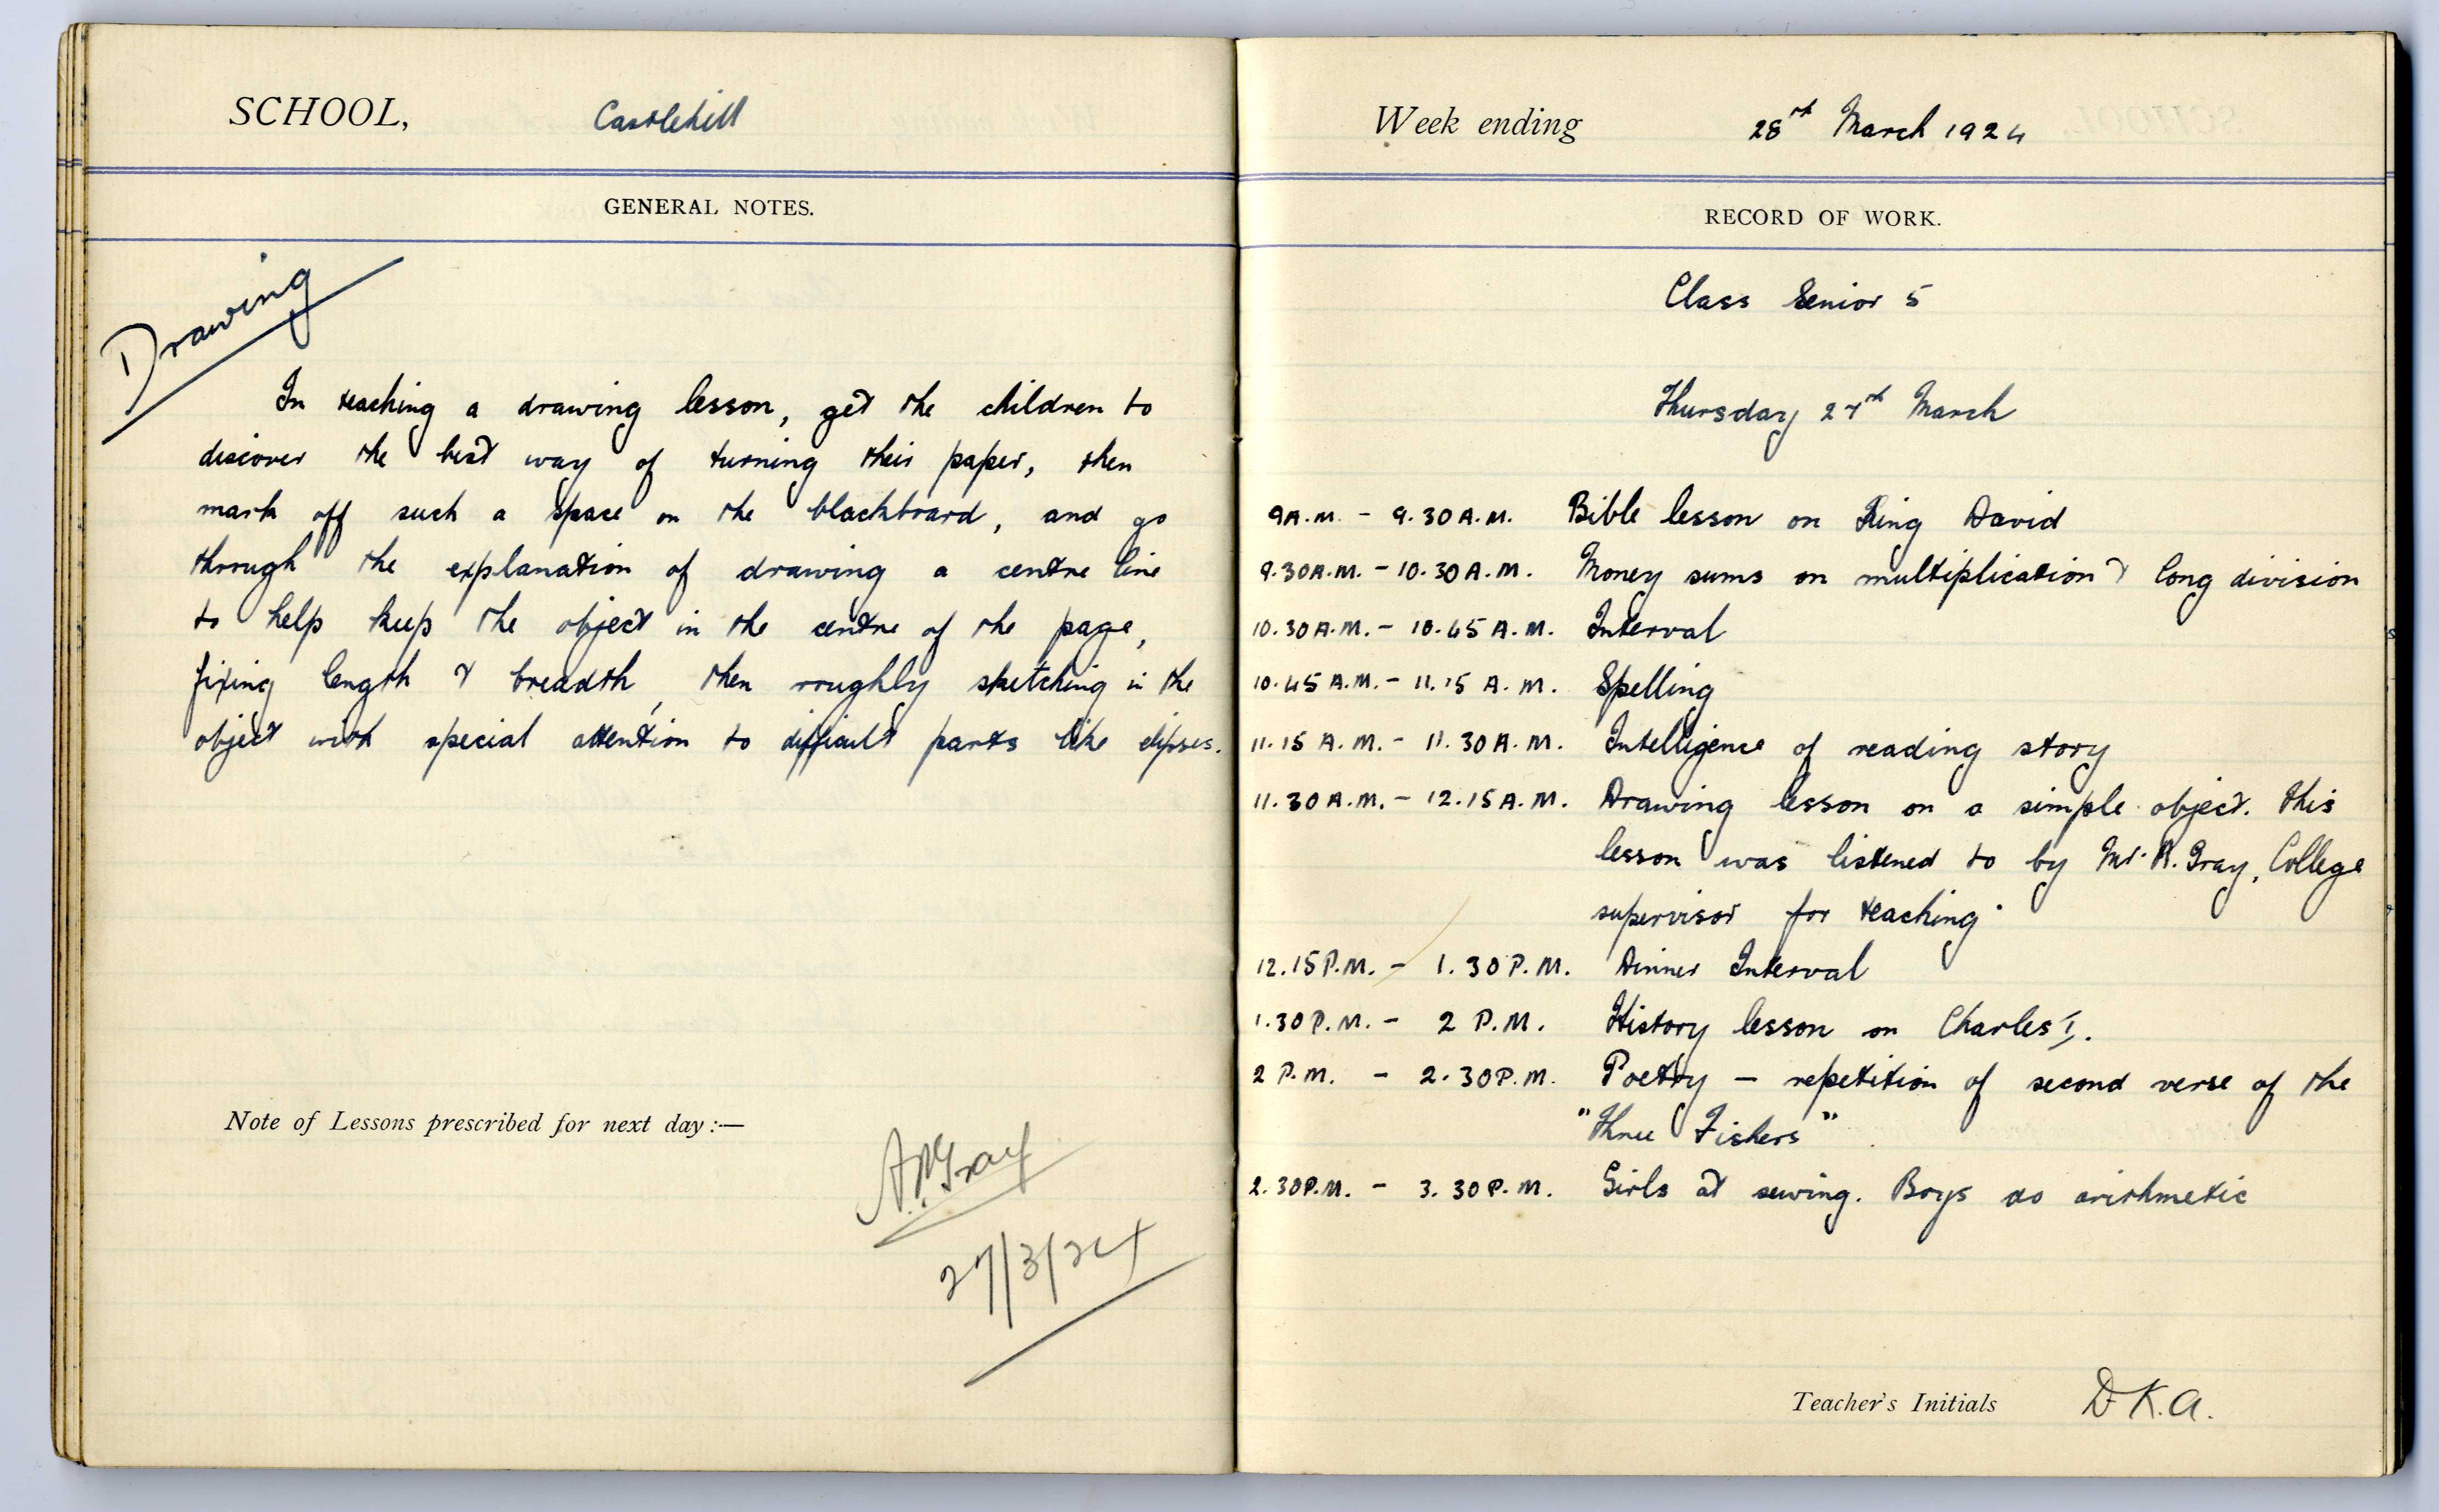 SCHOOL, Castlehill
GENERAL NOTES.
Drawing
In teaching a drawing lesson, get the children to
discover the best way of turning their paper, then
mark off such a space on the blackboard, and go
through the explanation of drawing a centre line
to help keep the object in the centre of the page,
fixing length & breadth, then roughly sketching in the
object with special attention to difficult parts like elipses.
Note of Lessons prescribed for next day:—
Gray
27/3/24
Week ending 28th March 1924
RECORD OF WORK.
Class Senior 5
Thursday 27th March
9 A.M. - 9.30 A.M. Bible lesson on King David
9.30 A.M. - 10.30 A.M. Money sums on multiplication & long division
10.30 A.M. - 10.45 A.M. Interval
10.45 A.M. - 11.15 A.M. Spelling
11.15 A.M. - 11.30 A.M. Intelligence of reading story
11.30 A.M. - 12.15 A.M. Drawing lesson on a simple object. This
lesson was listened to by Mr. A. Gray, College
supervisor for teaching.
12.15 P.M. - 1.30 P.M. Dinner Interval
1.30 P.M. - 2 P.M. History lesson on Charles I.
2 P.M. - 2.30 P.M. Poetry - repetition of second verse of the
"Three Fishers"
2.30 P.M. - 3.30 P.M. Girls at sewing. Boys do arithmetic
Teacher's Initials D.K.A.